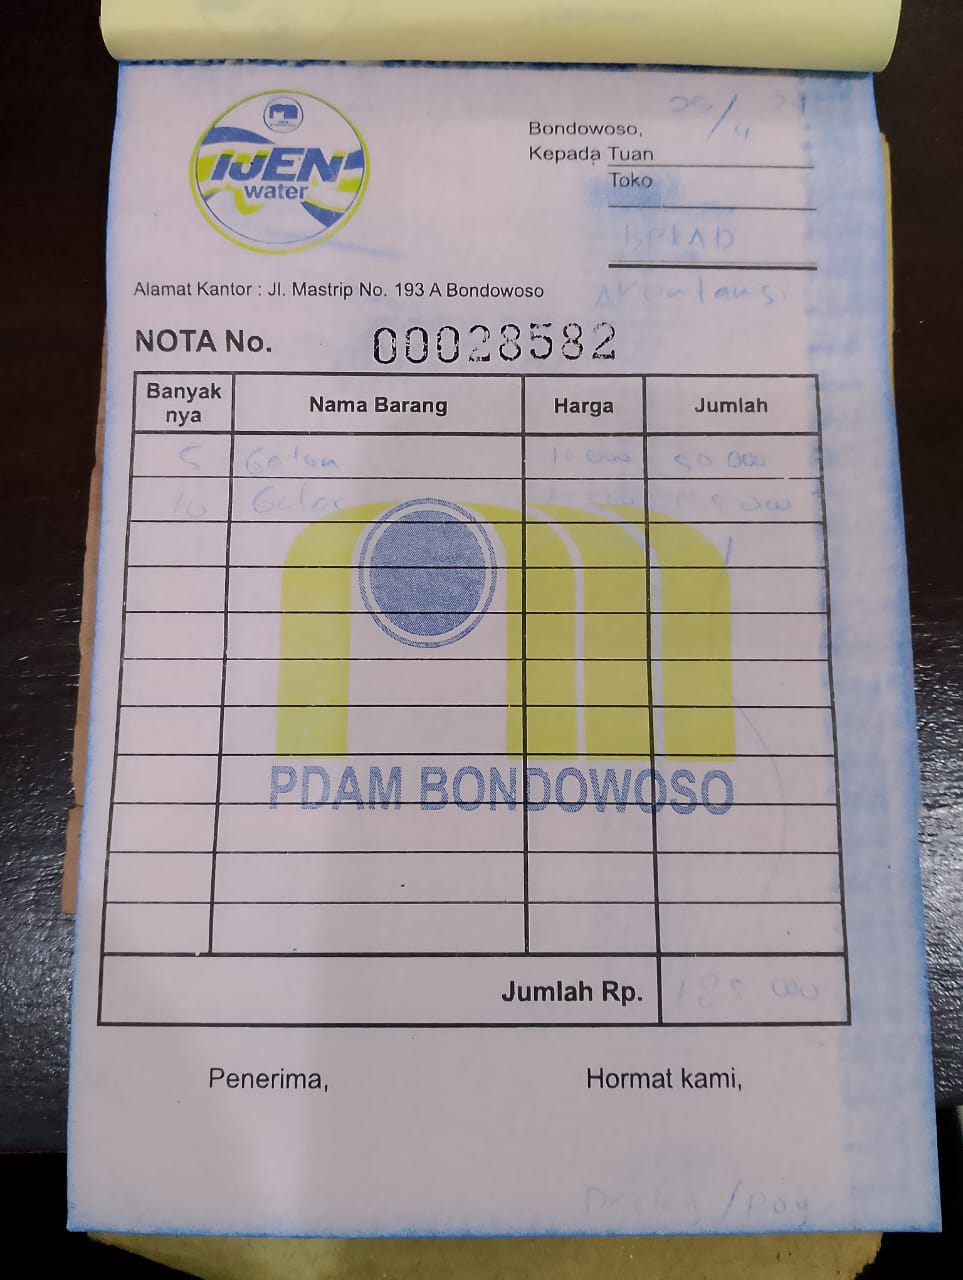 IJEN
water
Bondowoso, 25/4
Kepada Tuan
Toko
BPKAD
Akuntansi
Alamat Kantor : Jl. Mastrip No. 193 A Bondowoso
NOTA No. 00028582
Banyak nya Nama Barang Harga Jumlah
5 Galon 10 000 50 000
10 Gelas 000
PDAM BONDOWOSO
Jumlah Rp. 185 000
Penerima, Hormat kami,